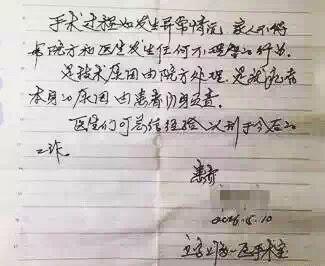 手术过程如发生异常情况 家人不得
与院方和医生发生任何不理智的行为.
是技术原因由院方处理. 是我患者
本身的原因由患者们自负责.
医生们可总结经验 以利于今后的
工作.
患者
2016.5.10